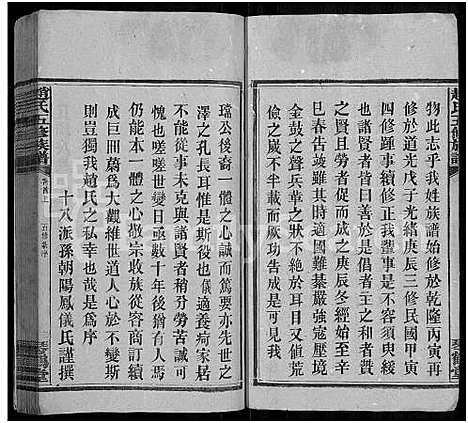 趙氏五修族譜
琴鶴堂
物此志乎我姓族譜始修於乾隆丙寅再
修於道光戊子光緒庚辰三修民國甲子
四修踵事續修正我輩事是今不但須與
之賢者皆曰善於是倡者主之和者與
之賢竭力而行成之庚辰冬經始至辛
巳春告竣適其時國難綦嚴強寇壓境
金鼓之聲兵革之狀不絕於耳目又値
儉之歲不半載而厥功告成是可見我
璫公後裔一體之心誠而篤要亦先世之
澤之孔長耳惟是斯役也儀適養疴家居
旣能從事未克與諸賢者稍分勞苦誠可
愧也嗟嗟世變日亟數十年後猶有人焉
能本一體之心敬宗收族從容商訂續
成巨冊蔚爲大觀維世道人心於不變斯
則豈獨我趙氏之私幸也哉是爲序
十八派孫朝陽鳳儀氏謹撰
趙氏五修族譜
卷首上
五修新序
琴鶴堂